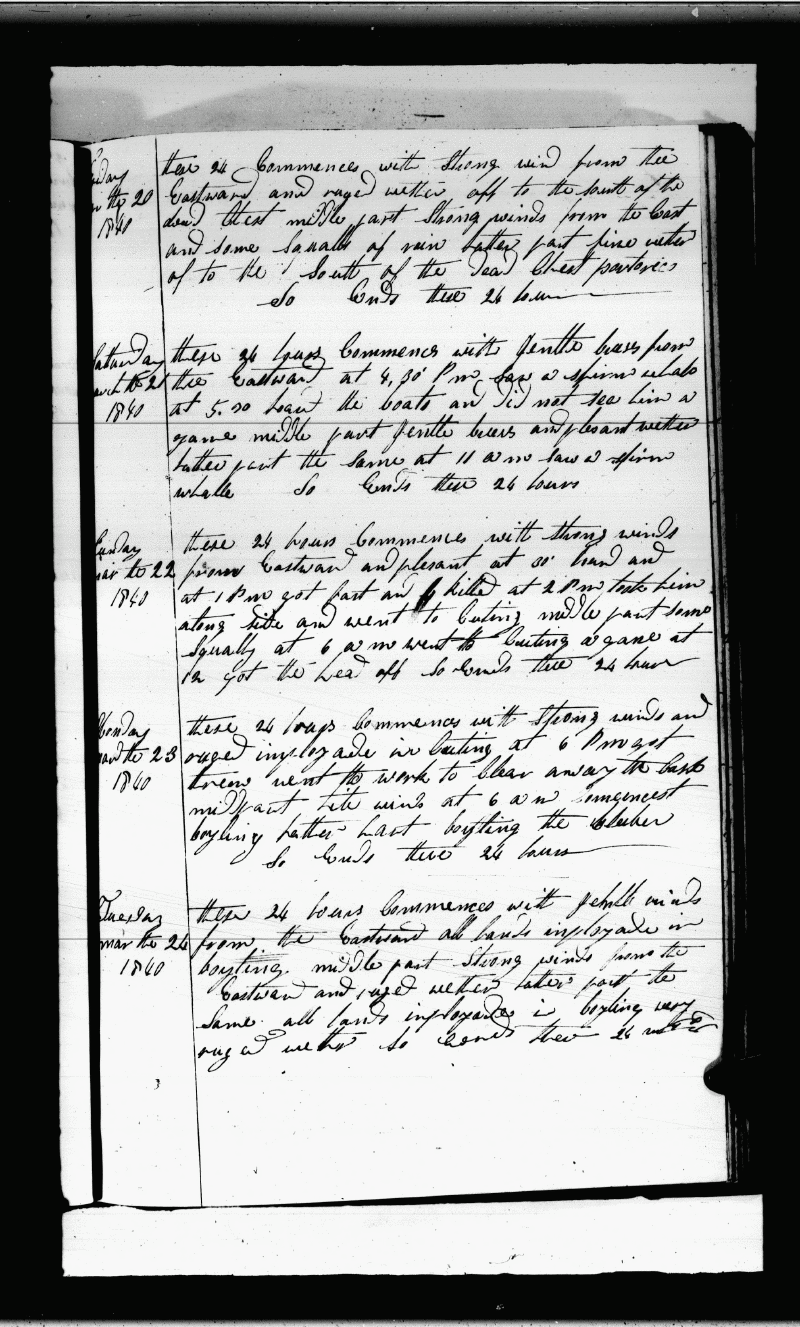 these 24 Commences with Strong wind from thee
Eastward and ruged wether off to the south of the
dead Chest middle part Strong winds from the East
and some Squalls of rain latter part fine wether
of to the South of the Dead Chest
So Ends these 24 hours
the 20
1840
these 24 hours Commences with gentle breses from
thee Eastward at 4,30 P m saw a spirm whale
at 5.30 the boats and did not see him a
gane middle part gentle breses and plesant wether
latter part the same at 11 a m saw a spirm
whalle So Ends thees 24 hours
Satturday
the 21
1840
these 24 hours Commences with strong winds
from Eastward and plesant at 30 and
at 1 P m got fast and killed at 2 P m took him
along side and went to Cuting middle part some
Squally at 6 a m went to Cuting a gane at
12 got the head off So Ends thees 24 hours
Sunday
mar the 22
1840
these 24 hours Commences with strong winds and
ruged imployade in Cuting at 6 P m got
threw went to work to Clear away the Cask
midpart lite winds at 6 a m Comencest
boyling latter part boyling the bleuber
So Ends thees 24 hours
Monday
mar the 23
1840
these 24 hours Commences with gentle winds
from the Eastward all hands imployade in
boyling middle part Strong winds from the
Eastward and ruged wether latter part the
same all hands imployade in boyling very
ruged wether So Ends thees 24
Tuesday
mar the 24
1840